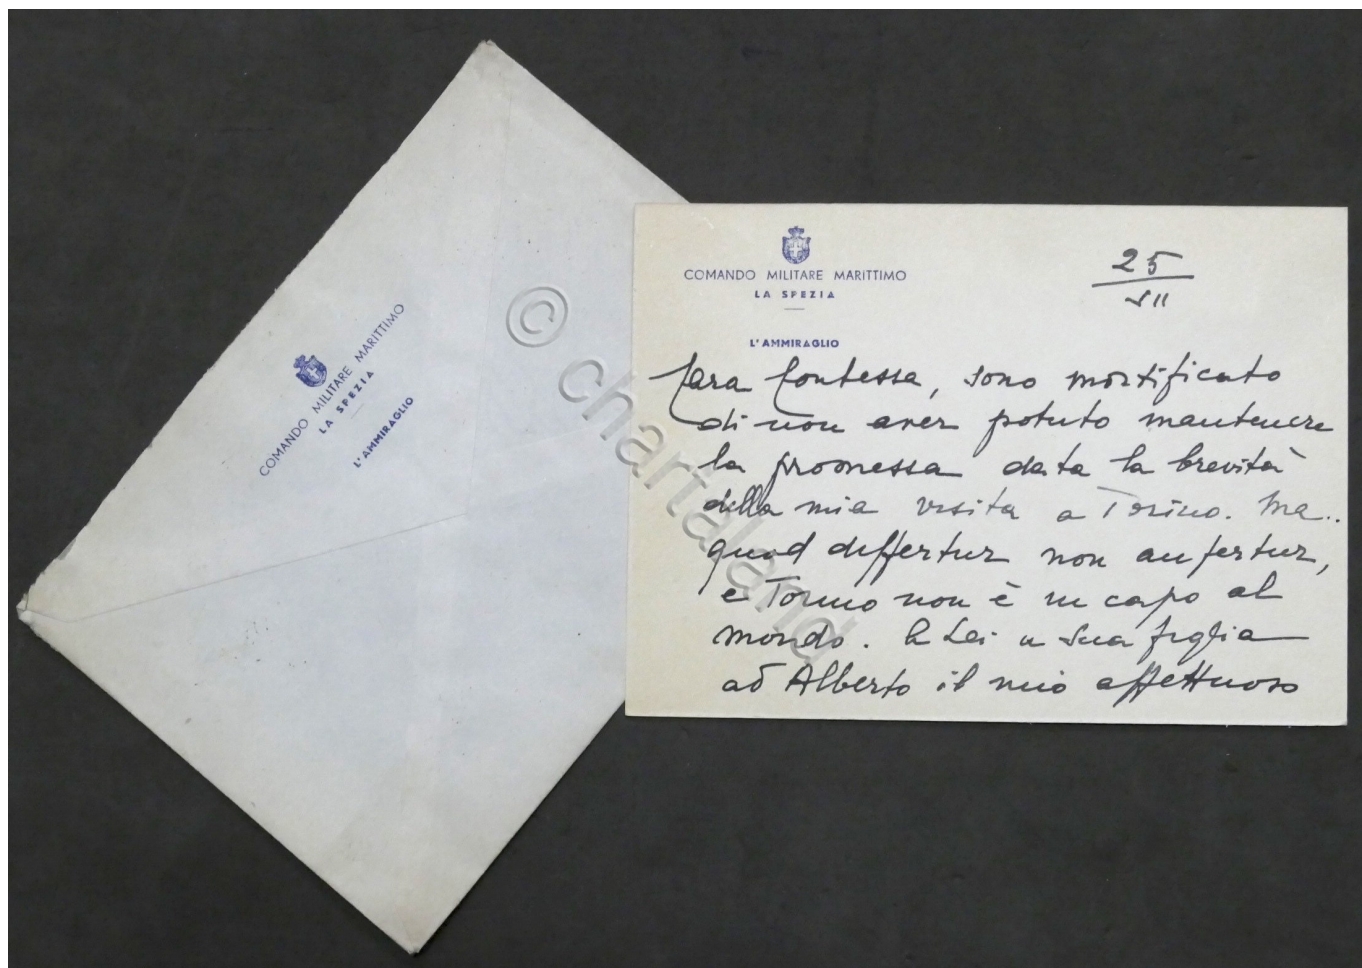 COMANDO MILITARE MARITTIMO
LA SPEZIA
L'AMMIRAGLIO
© chartaland
COMANDO MILITARE MARITTIMO
LA SPEZIA
L'AMMIRAGLIO
25
VII
Cara Contessa, sono mortificato
di non aver potuto mantenere
la promessa data la brevità
della mia visita a Torino. Ma..
quod differtur non aufertur,
e Torino non è in capo al
mondo. a Lei a Sua figlia
ad Alberto il mio affettuoso